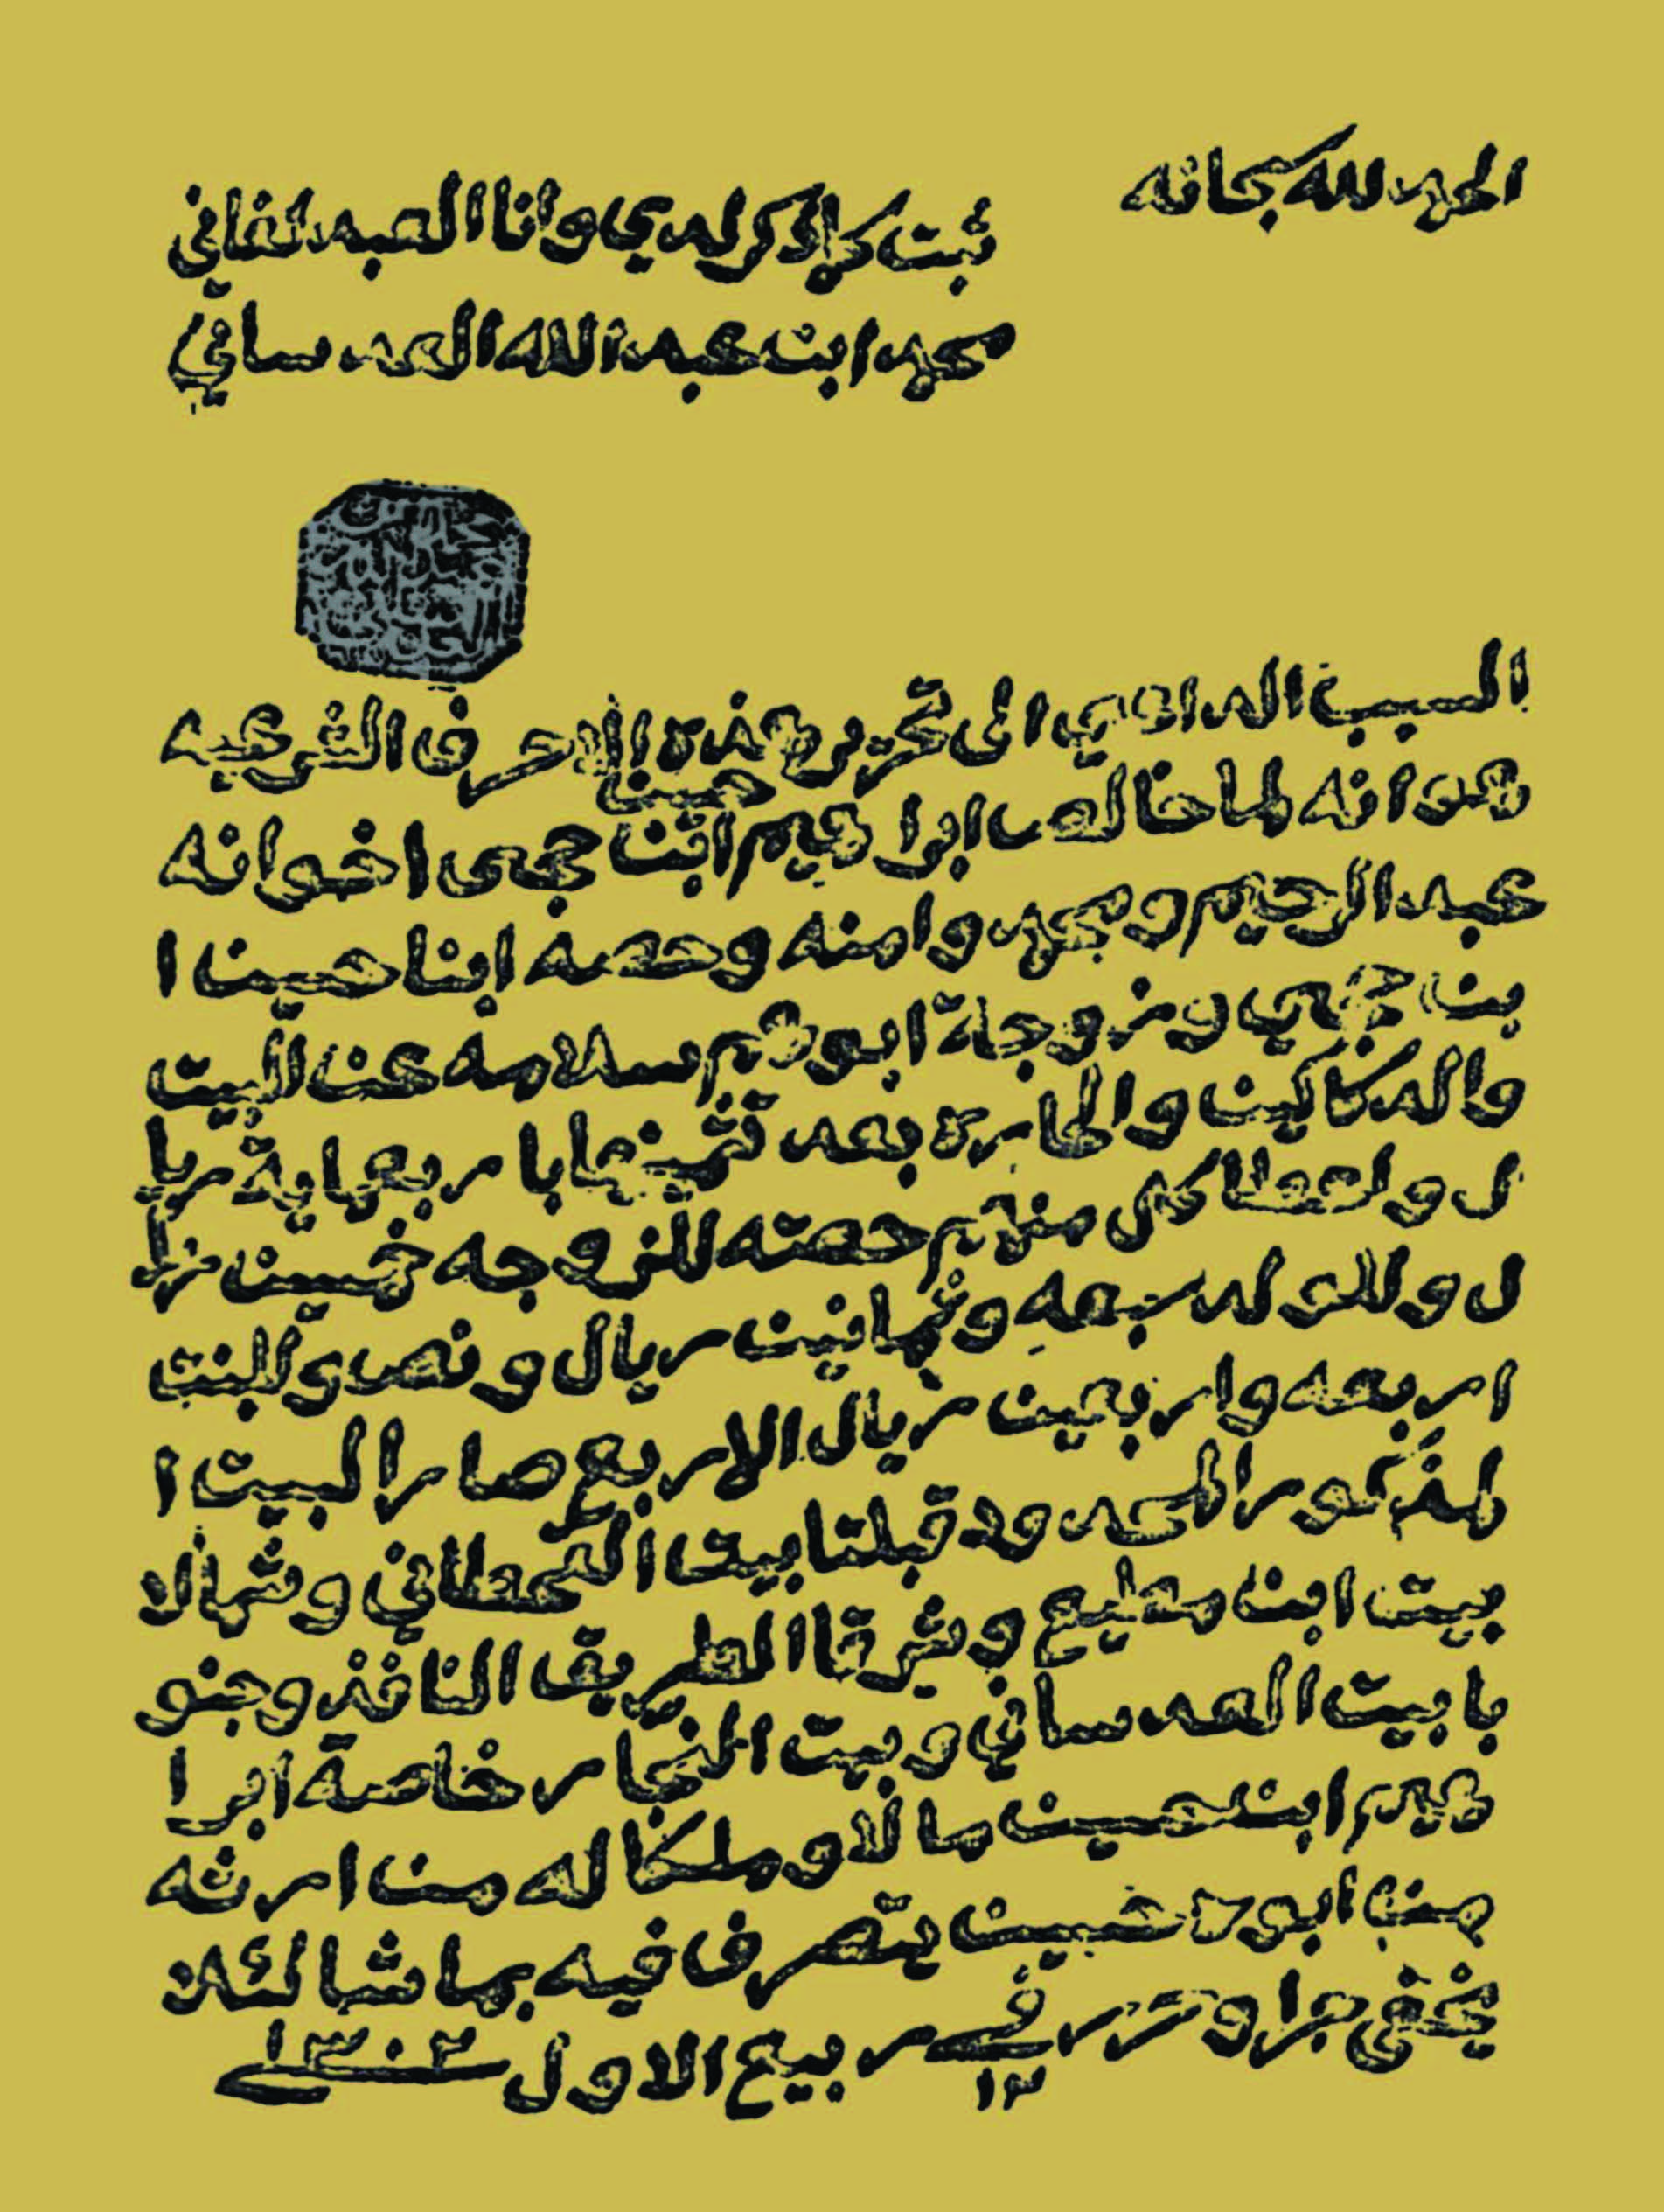 الحمد لله سبحانه
ثبت كما ذكر لدي وانا العبد الفاني
محمد ابن عبد الله العدساني
السبب الداعي الى تحرير هذه الاحرف الشرعيه
هو انه لما خالص ابراهيم ابن حسين حجي اخوانه
عبد الرحيم ومحمد وامنه وحصه ابنا حسين ا
بن حجي وزوجة ابوهم سلامه عن البيت
والدكاكين والحاره بعد تثمينها باربعماية ريا
ل واعطا كل منهم حصته للزوجه خمسين ريا
ل وللولد سبعه وثمانين ريال ونص وللبنت
اربعه واربعين ريال الا ربع صار البيت ا
لمذكور المحدود قبلتا بيت القحطاني وشمالا
بيت ابن مطيع وشرقا الطريق النافذ وجنو
با بيت العدساني وبيت النجار خاصة ابرا
هيم ابن حسين مالا وملكا له من ارثه
من ابوه حسين يتصرف فيه بما شا لئلا
يخفى جرا وحرر في ١٢ ربيع الاول ١٣٠٢